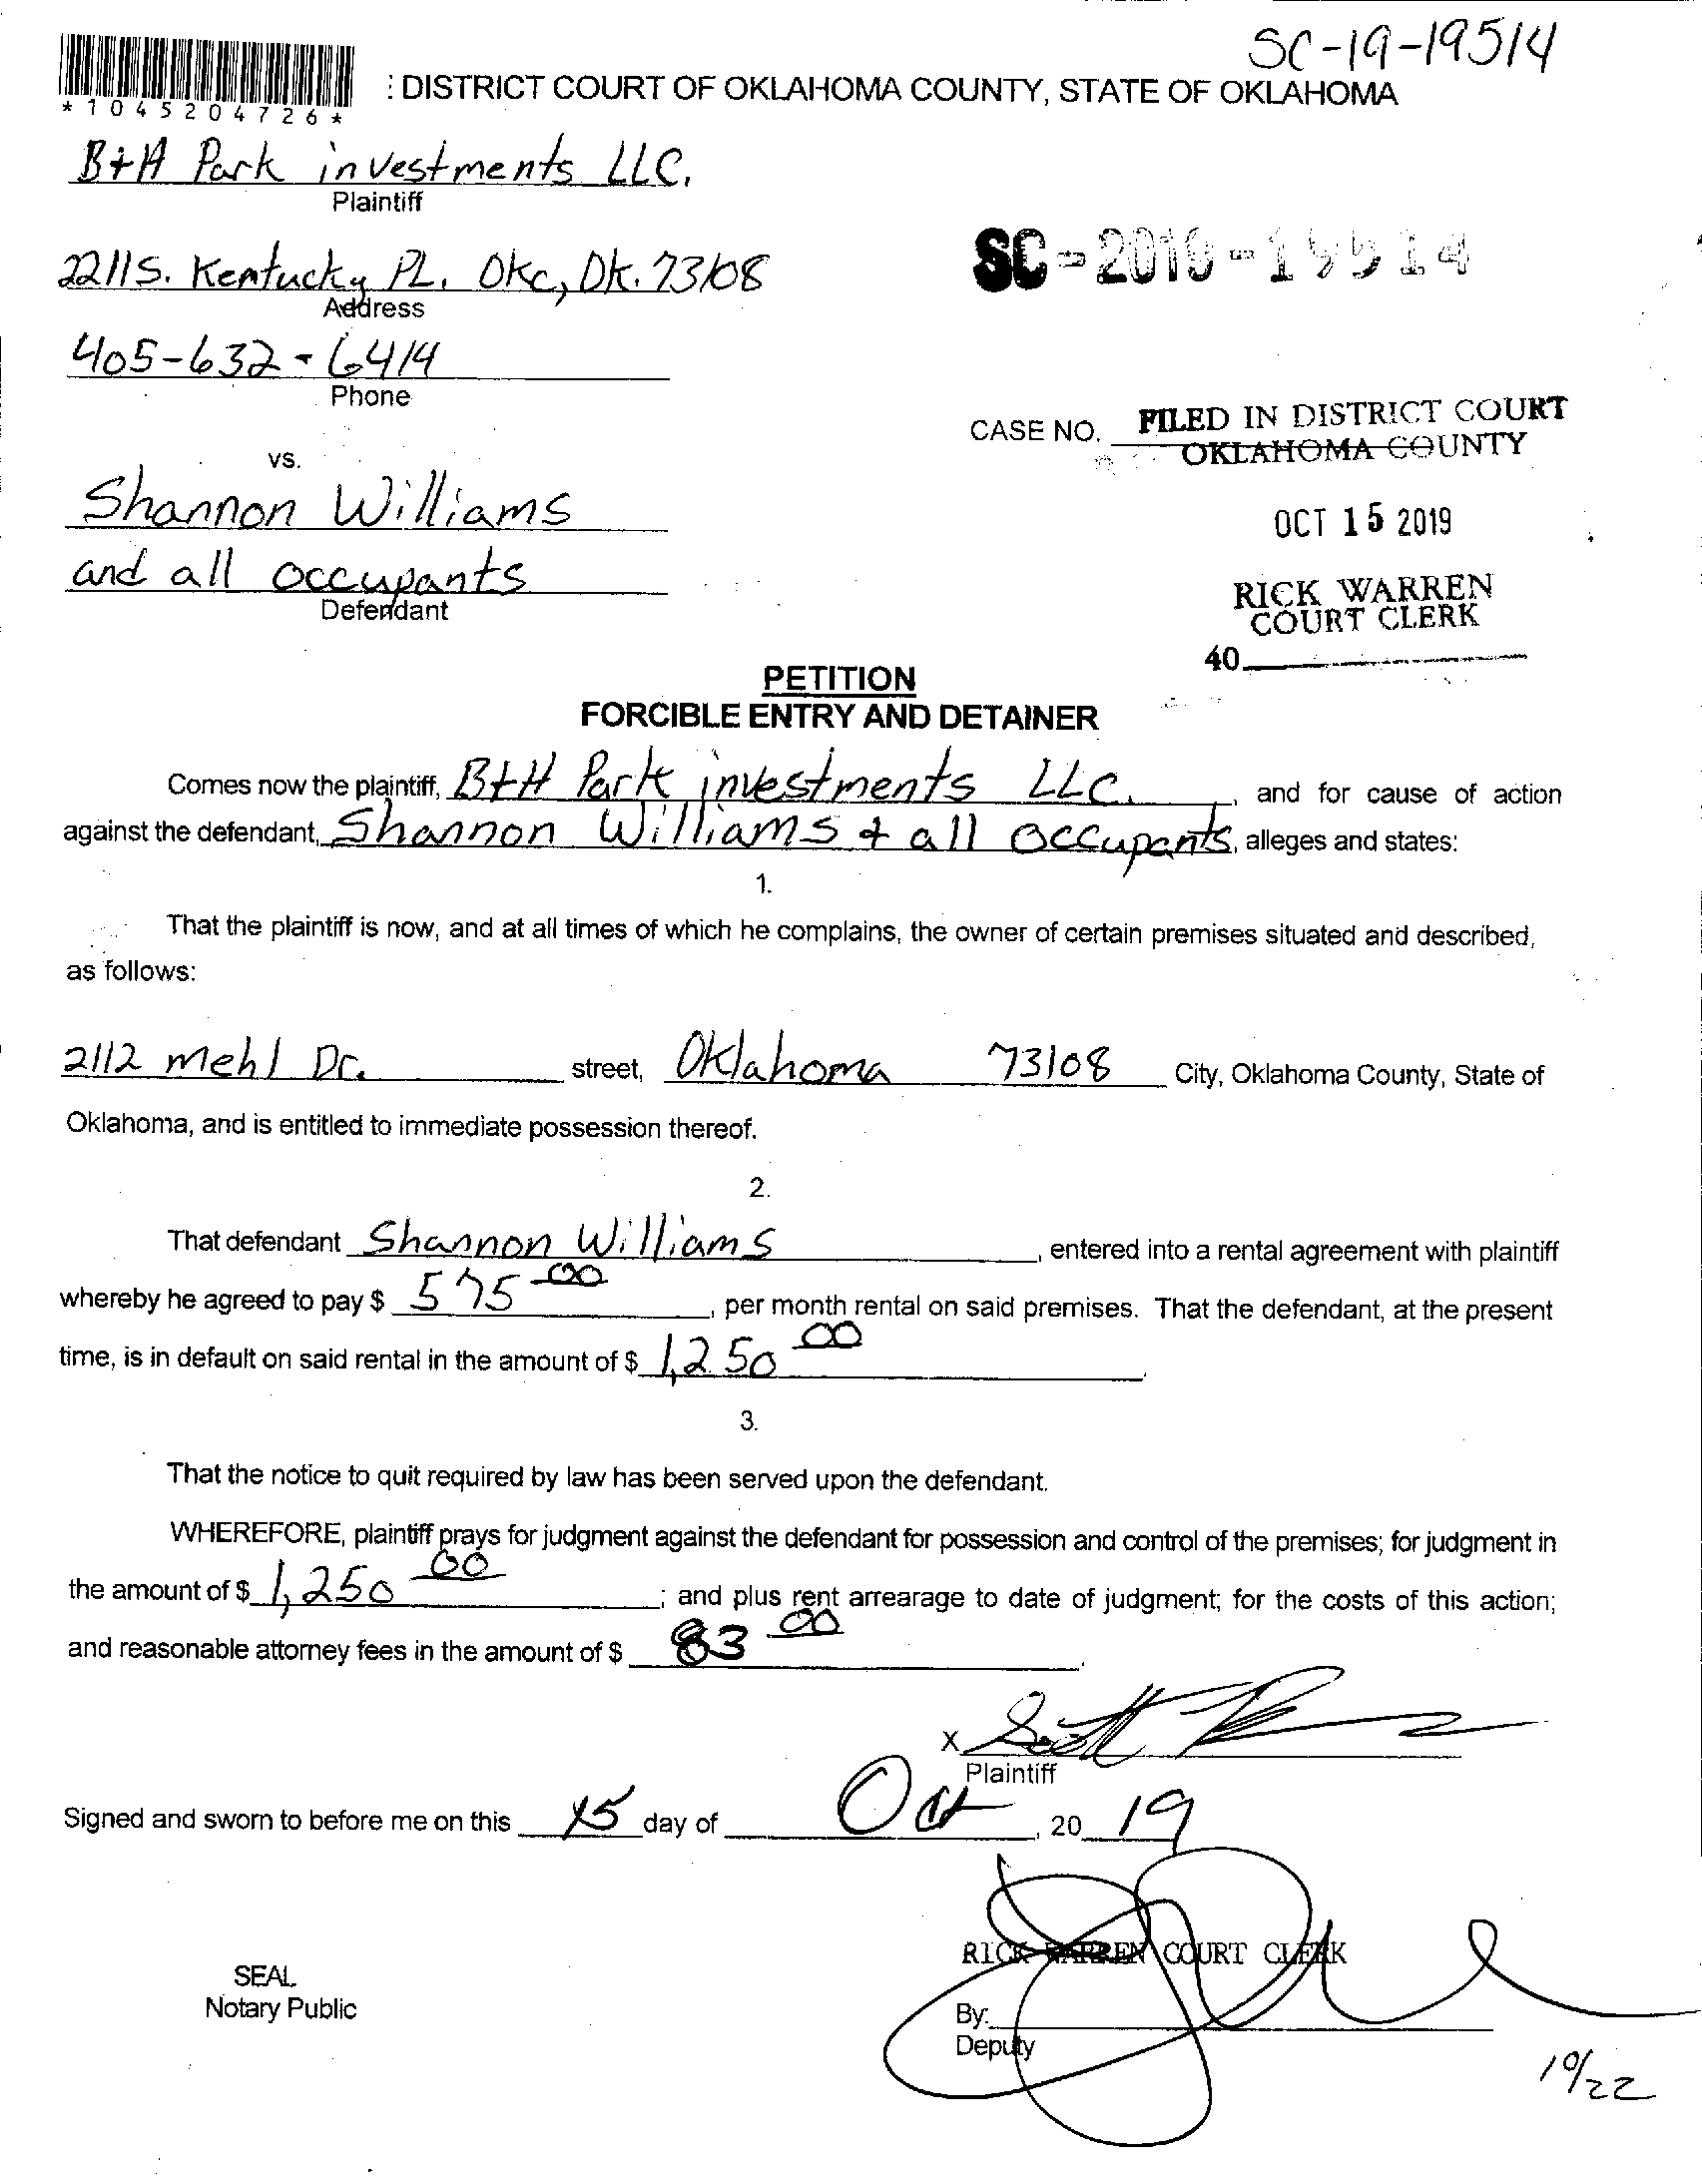 SC-19-19514
*1045204726*
: DISTRICT COURT OF OKLAHOMA COUNTY, STATE OF OKLAHOMA
B+H Park investments LLC.
Plaintiff
2211 S. Kentucky PL. OKC, OK. 73108
Address
SC-2019-19514
405-632-6414
Phone
CASE NO. FILED IN DISTRICT COURT
OKLAHOMA COUNTY
vs.
Shannon Williams
OCT 15 2019
and all occupants
Defendant
RICK WARREN
COURT CLERK
40
PETITION
FORCIBLE ENTRY AND DETAINER
Comes now the plaintiff, B+H Park investments LLC., and for cause of action
against the defendant, Shannon Williams + all occupants, alleges and states:
1.
That the plaintiff is now, and at all times of which he complains, the owner of certain premises situated and described,
as follows:
2112 mehl Dr. street, Oklahoma 73108 City, Oklahoma County, State of
Oklahoma, and is entitled to immediate possession thereof.
2.
That defendant Shannon Williams, entered into a rental agreement with plaintiff
whereby he agreed to pay $ 575 00, per month rental on said premises. That the defendant, at the present
time, is in default on said rental in the amount of $ 1,250 00.
3.
That the notice to quit required by law has been served upon the defendant.
WHEREFORE, plaintiff prays for judgment against the defendant for possession and control of the premises; for judgment in
the amount of $ 1,250 00; and plus rent arrearage to date of judgment; for the costs of this action;
and reasonable attorney fees in the amount of $ 83 00.
X Scott
Plaintiff
Signed and sworn to before me on this 15 day of Oct, 20 19
RICK WARREN COURT CLERK
SEAL
Notary Public
By:
Deputy
10/22